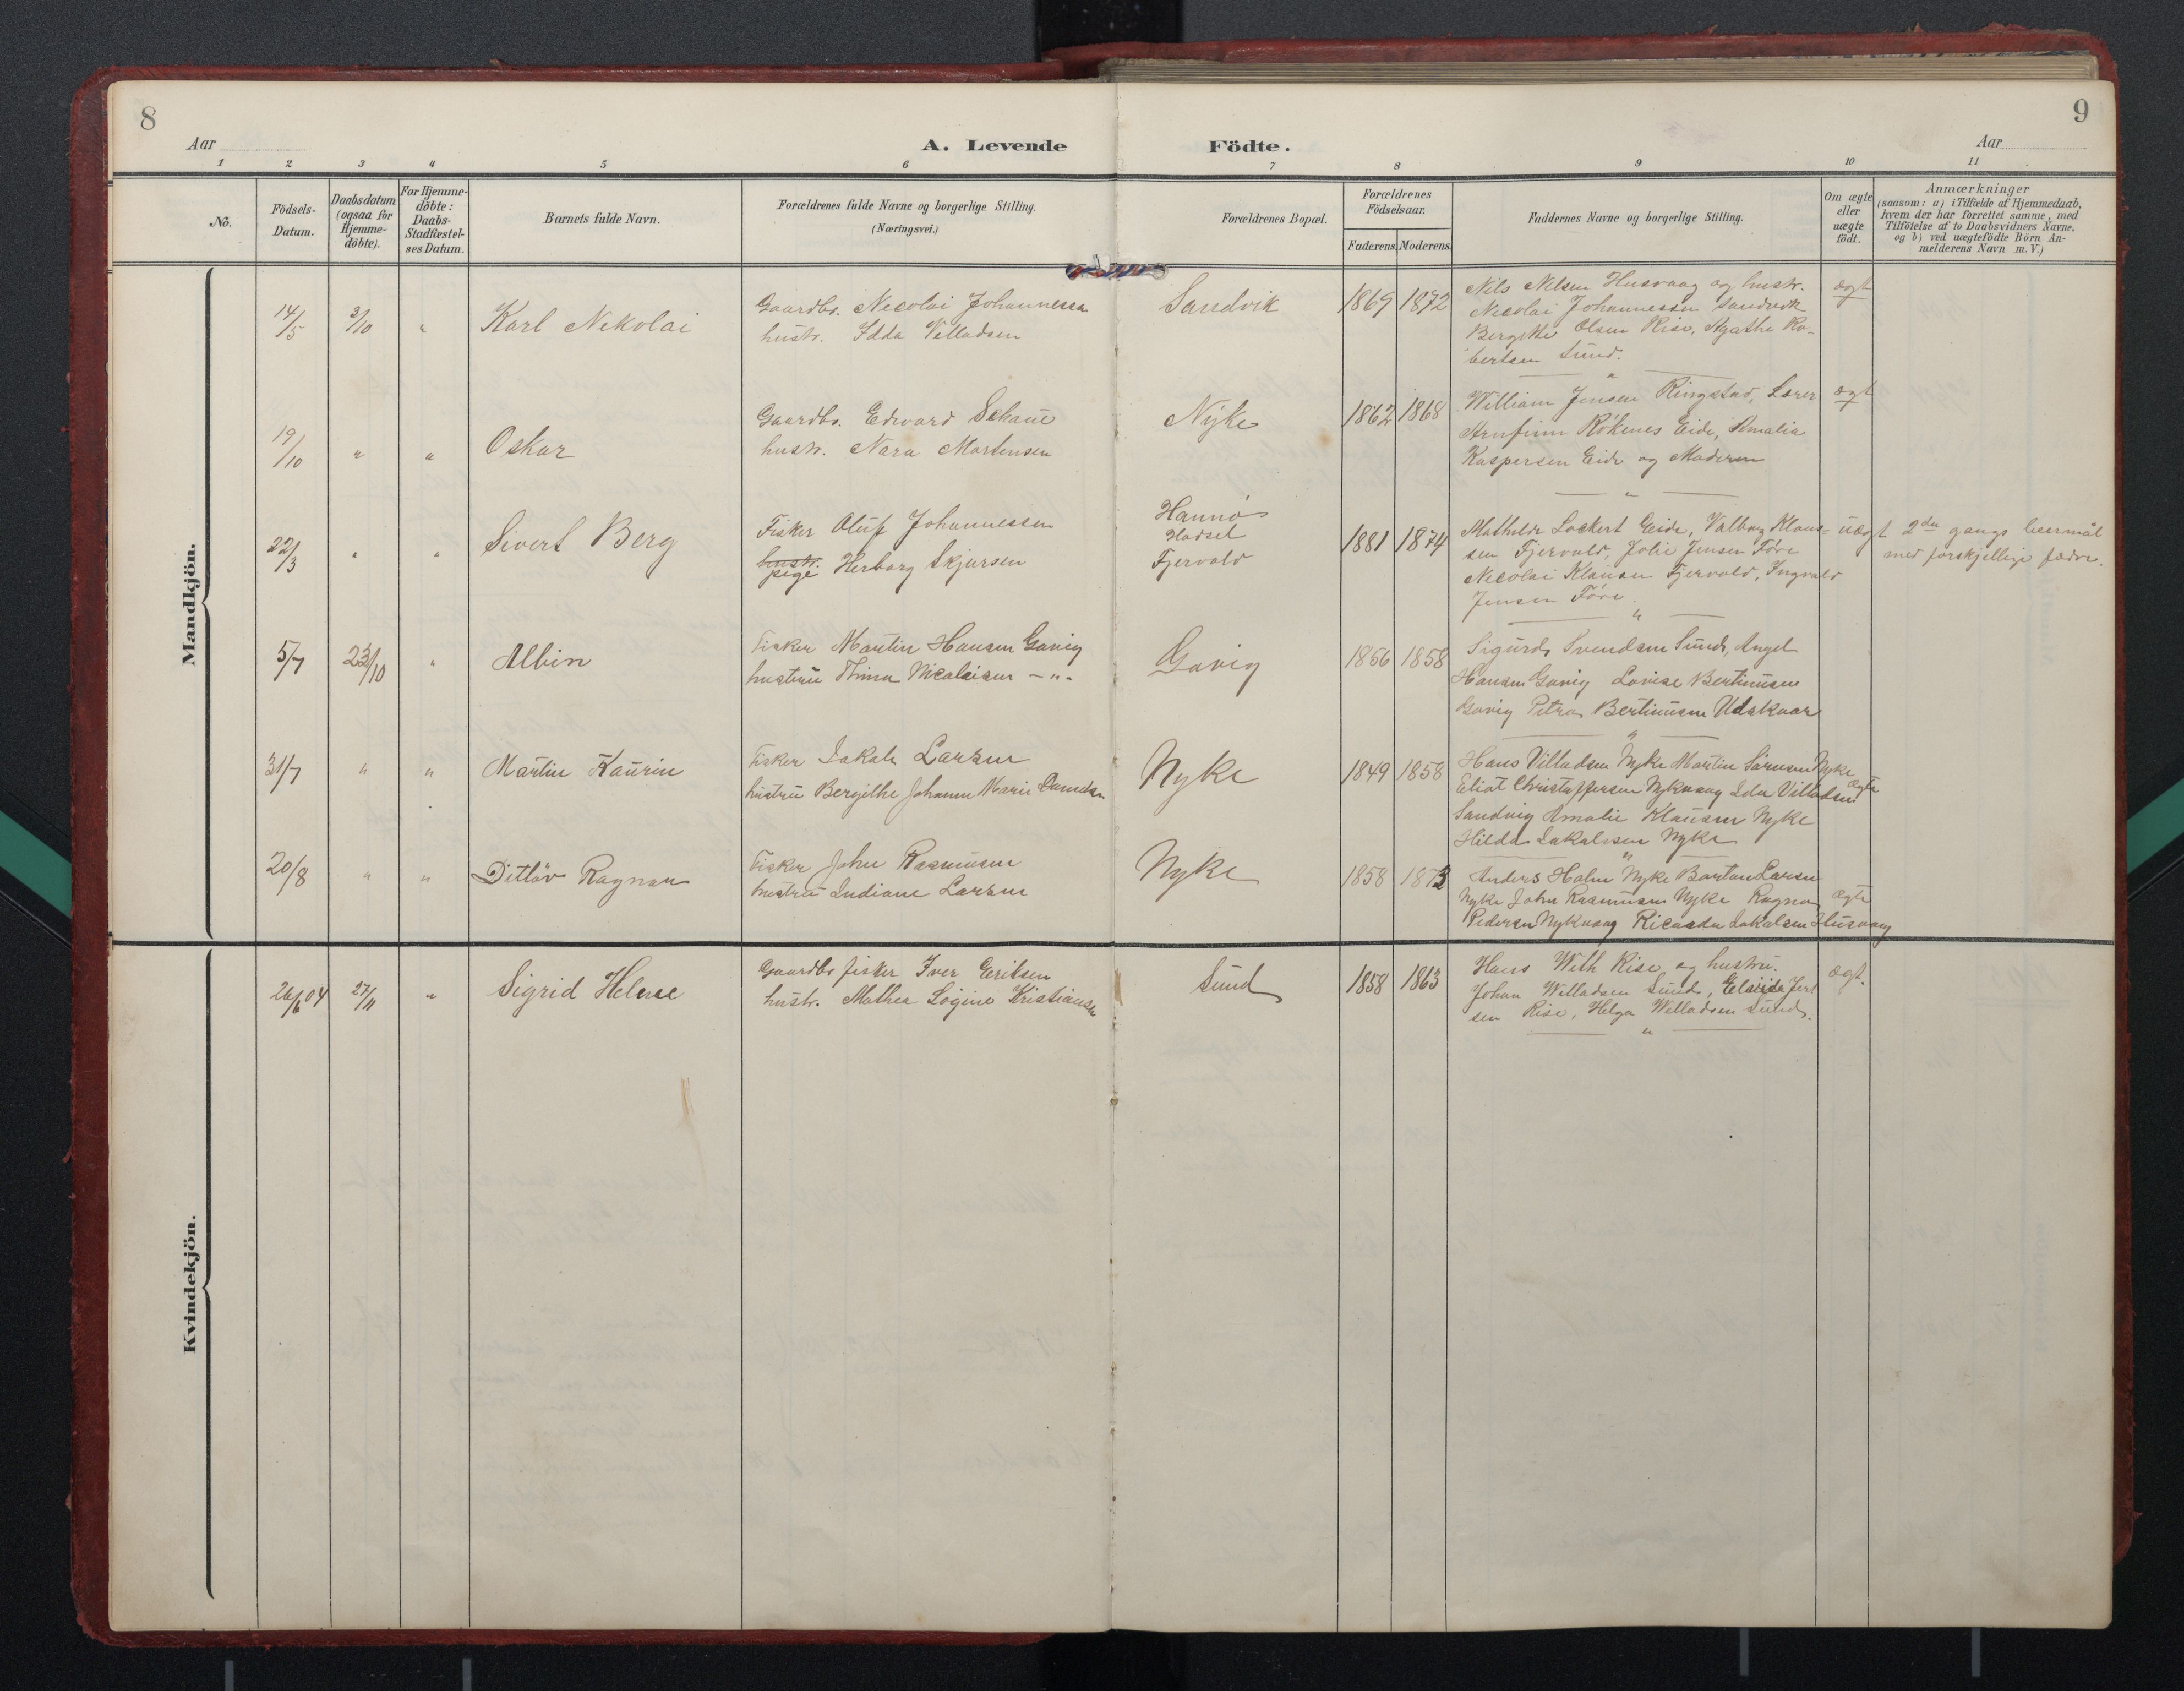 8
9
Aar
A. Levende
Födte.
Aar
1 2 3 4 5 6 7 8 9 10 11
No.
Födsels-
Datum.
Daabsdatum
(ogsaa for
Hjemme-
döbte).
For Hjemme-
döbte:
Daabs-
Stadfæstel-
ses Datum.
Barnets fulde Navn.
Forældrenes fulde Navne og borgerlige Stilling.
(Næringsvei.)
Forældrenes Bopæl.
Forældrenes
Födselsaar.
Faderens. Moderens.
Faddernes Navne og borgerlige Stilling.
Om ægte
eller
uægte
födt.
Anmærkninger
(saasom: a) i Tilfælde af Hjemmedaab,
hvem der har forrettet samme, med
Tilföielse af to Daabsvidners Navne,
og b) ved uægtefödte Börn An-
melderens Navn m. V.)
Mandkjön.
14/5 3/10 " Karl Nekolai
Gaardbr. Necolai Johannessen
hustr. Idda Velladsen
Sandvik
1869 1872
Nils Nelsen Husvaag og hustr.
Necolai Johannessen Sandvik
Bergitte Olsen Rise, Agathe Ro-
bertsen Sund.
ægt
"
19/10 " " Oskar
Gaardbr. Edvard Schaue
hustr. Nara Mortensen
Nyke
1862 1868
William Jensen Ringstad, Lærer
Arnfinn Rökenes Eide, Amalia
Kaspersen Eide og Moderen
ægt
"
22/3 " " Sivert Berg
Fisker Oluf Johannessen
hustr.
pige Herborg Skjarsen
Hannö
Hadsel
Fjervold
1881 1874
Mathilde Lockert Eide, Valborg Klau-
sen Fjervold, Jolie Jensen Före
Necolai Klausen Fjervold, Ingvald
Jensen Före.
uægt
2den gangs leiermål
med forskjellige fædre.
"
5/7 23/10 " Albin
Fisker Martin Hansen Gavig
hustru Thina Nicolaisen - " -
Gavig
1856 1858
Sigurd Svendsen Sund, Angel
Hansen Gavig Lovise Bertinusen
Gavig Petra Bertinusen Udskaar
"
31/7 " " Martin Kaurin
Fisker Jakob Larsen
hustru Bergithe Johanne Marie Danielsen
Nyke
1849 1858
Hans Villadsen Nyke Martin Sörensen Nyke
Eliot Christoffersen Nykvaag Ida Villadsen
Sandvig Amalie Klausen Nyke
Hilda Jakobsen Nyke
Ægte
"
20/8 " " Ditlöv Ragnar
Fisker John Rasmusen
hustru Indiane Larsen
Nyke
1858 1873
Anders Holm Nyke Bortan Larsen
Nyke John Rasmusen Nyke Ragna
Pedersen Nykvaag Ricarda Jakobsen Husvaag
Ægte
Kvindekjön.
26/6 04 27/11 " Sigrid Helene
Gaardbr fisker Iver Eriksen
hustr. Mathea Logine Kristiansen
Sund
1858 1863
Hans With Rise og hustru.
Johan Willadsen Sund, Elaida Jert
sen Rise, Helga Willadsen Sund.
ægt.
"